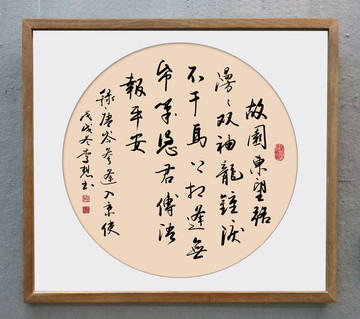 故園東望路
漫々双袖龍鐘淚
不干馬上相逢無
帋筆憑君傳語
報平安
録唐岑參逢入京使
戊戌冬李想书